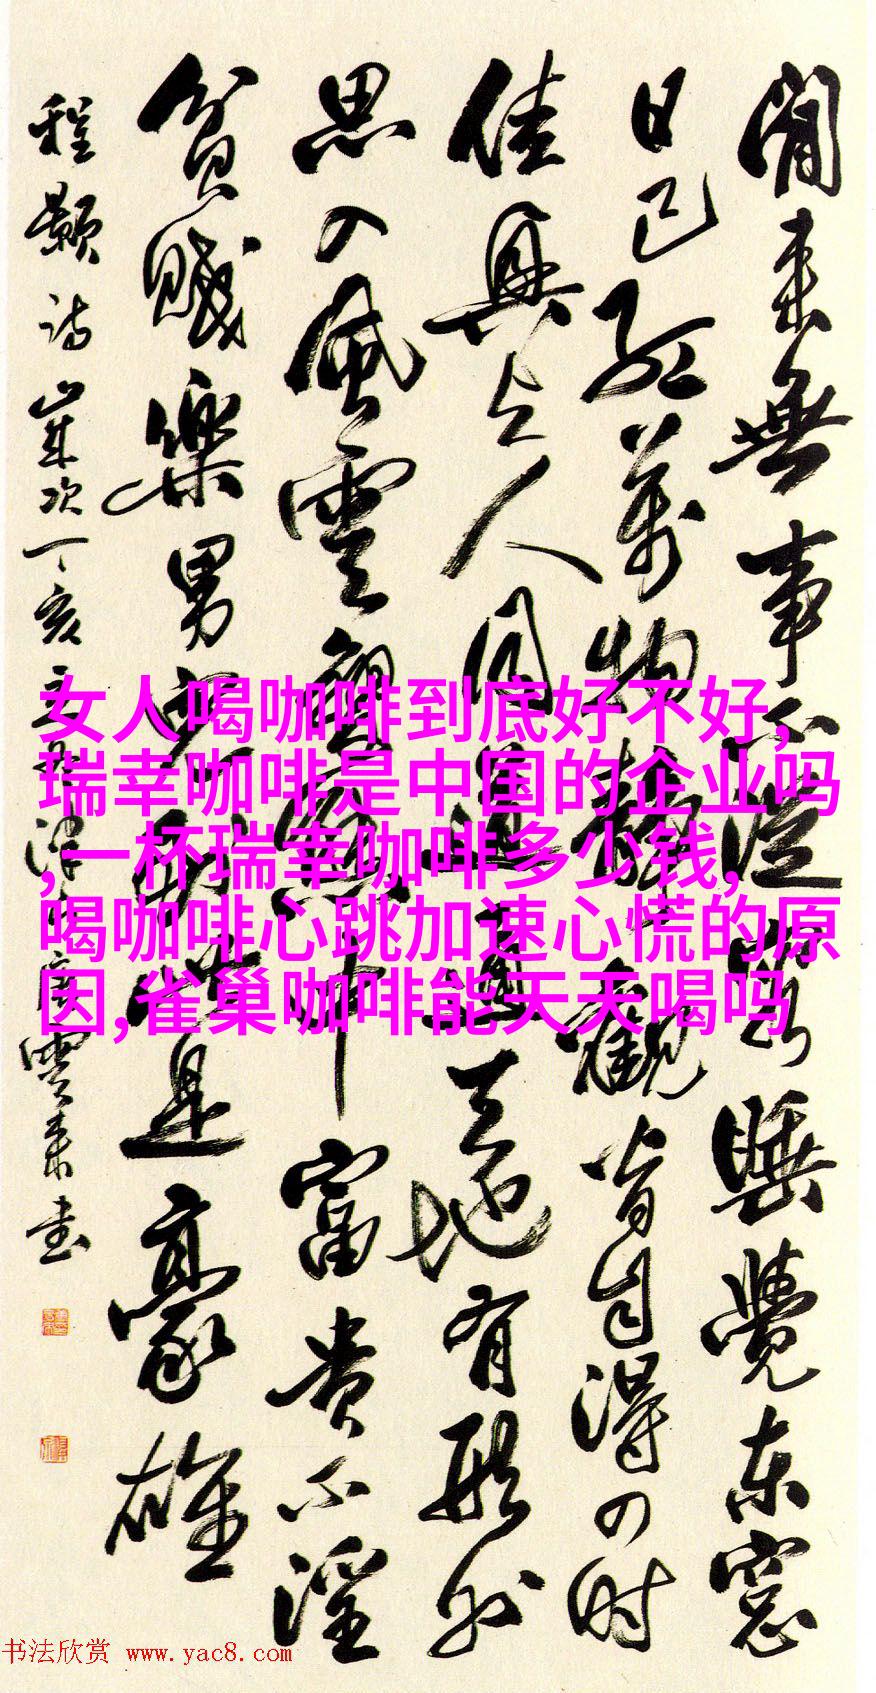 閒來無事不從容睡覺東窓
日已紅萬物靜觀皆自得四時
佳興与人同道通天地有形外
思入風雲變態中富貴不淫
貧賤樂男兒到此是豪雄
程顥詩歲次丁亥津唐雲來書
女人喝咖啡到底好不好,
瑞幸咖啡是中国的企业吗
,一杯瑞幸咖啡多少钱,
喝咖啡心跳加速心慌的原
因,雀巢咖啡能天天喝吗
书法欣赏 www.yac8.com